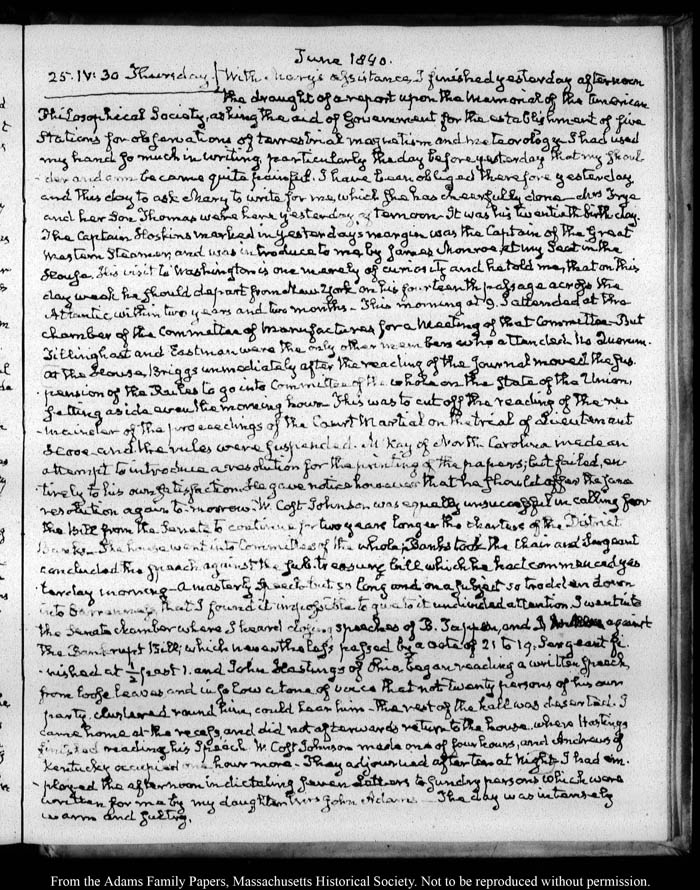 June 1840.
25. IV: 30 Thursday. With Mary's assistance, I finished yesterday afternoon
the draught of a report upon the Memorial of the American
Philosophical Society, asking the aid of Government for the establishment of five
Stations for observations of terrestrial magnetism and meteorology. I had used
my hand so much in writing, particularly the day before yesterday that my shoul-
-der and arm became quite painful. I have been obliged therefore yesterday
and this day to ask Mary to write for me, which she has cheerfully done. Mrs Frye
and her Son Thomas were here yesterday afternoon. It was his twentieth birth day.
The Captain Hoskins marked in yesterday's margin was the Captain of the Great
Western Steamer, and was introduced to me by James Monroe, at my Seat in the
House. His visit to Washington is one merely of curiosity and he told me, that on this
day week he should depart from New York on his fourteenth passage across the
Atlantic within two years and two months. This morning at 9. I attended at the
chamber of the Committee of Manufactures for a Meeting of that Committee. But
Tillinghast and Eastman were the only other members who attended. No Quorum.
At the House, Briggs immediately after the reading of the Journal moved the sus-
-pension of the Rules to go into Committee of the whole on the State of the Union,
setting aside even the morning hour. This was to cut off the reading of the re-
-mainder of the proceedings of the Court Martial on the trial of Lieutenant
Hooe and the rules were suspended. McKay of North Carolina made an
attempt to introduce a resolution for the printing of the papers; but failed, en-
-tirely to his own satisfaction. He gave notice however that he should offer the same
resolution again to-morrow. W. Cost Johnson was equally unsuccessful in calling for
the Bill from the Senate to continue for two years longer the charters of the District
Banks. The house went into Committee of the whole, Banks took the Chair and Sergeant
concluded the speech against the sub-treasury bill which he had commenced yes-
-terday morning. A masterly speech but so long and on a subject so trodden down
into barrenness, that I found it impossible to give to it undivided attention. I went into
the Senate chamber where I heard closing speeches of B. Tappan, and against
the Bankrupt Bill; which nevertheless passed by a vote of 21 to 19. Sergeant fi-
-nished at ½ past 1. and John Hastings of Ohio began reading a written speech
from loose leaves and in so low a tone of voice that not twenty persons of his own
party, clustered round him, could hear him. The rest of the hall was deserted. I
came home at the recess, and did not afterwards return to the house, where Hastings
finished reading his Speech. W. Cost Johnson made one of four hours, and Andrews of
Kentucky occupied one hour more. They adjourned after ten at Night. I had em-
-ployed the afternoon in dictating seven Letters to sundry persons which were
written for me by my daughter Mrs John Adams. The day was intensely
warm and sultry.
From the Adams Family Papers, Massachusetts Historical Society. Not to be reproduced without permission.